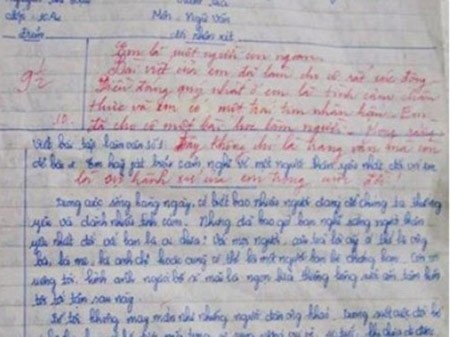 Lớp: 10A Môn: Ngữ văn
Điểm Lời nhận xét
9 1/2 Em là một người con ngoan.
Bài viết của em đã làm cho cô rất xúc động.
Điều đáng quý nhất ở em là tình cảm chân
thực và em có một trái tim nhân hậu. Em
10 đã cho cô một bài học làm người. Mong rằng
Viết bài tập làm văn số 1: Đây không chỉ là trang văn mà còn
Đề bài: Em hãy phát biểu cảm nghĩ về một người thân yêu nhất đối với em
là sự hành xử của em trong cuộc đời!
Trong cuộc sống hàng ngày, có biết bao nhiêu người đáng để chúng ta thương
yêu và dành nhiều tình cảm. Nhưng đã bao giờ bạn nghĩ rằng người thân
yêu nhất đối với bạn là ai chưa? Với mọi người, câu trả lời ấy có thể là ông
bà, là mẹ, là anh chị hoặc cũng có thể là một người bạn bè chẳng hạn. Còn với
riêng tôi, hình ảnh người bố sẽ mãi là ngọn lửa thiêng liêng sưởi ấm tâm hồn
tôi tới tận sau này.
Bố tôi không may mắn như những người đàn ông khác. Trong suốt cuộc đời bố